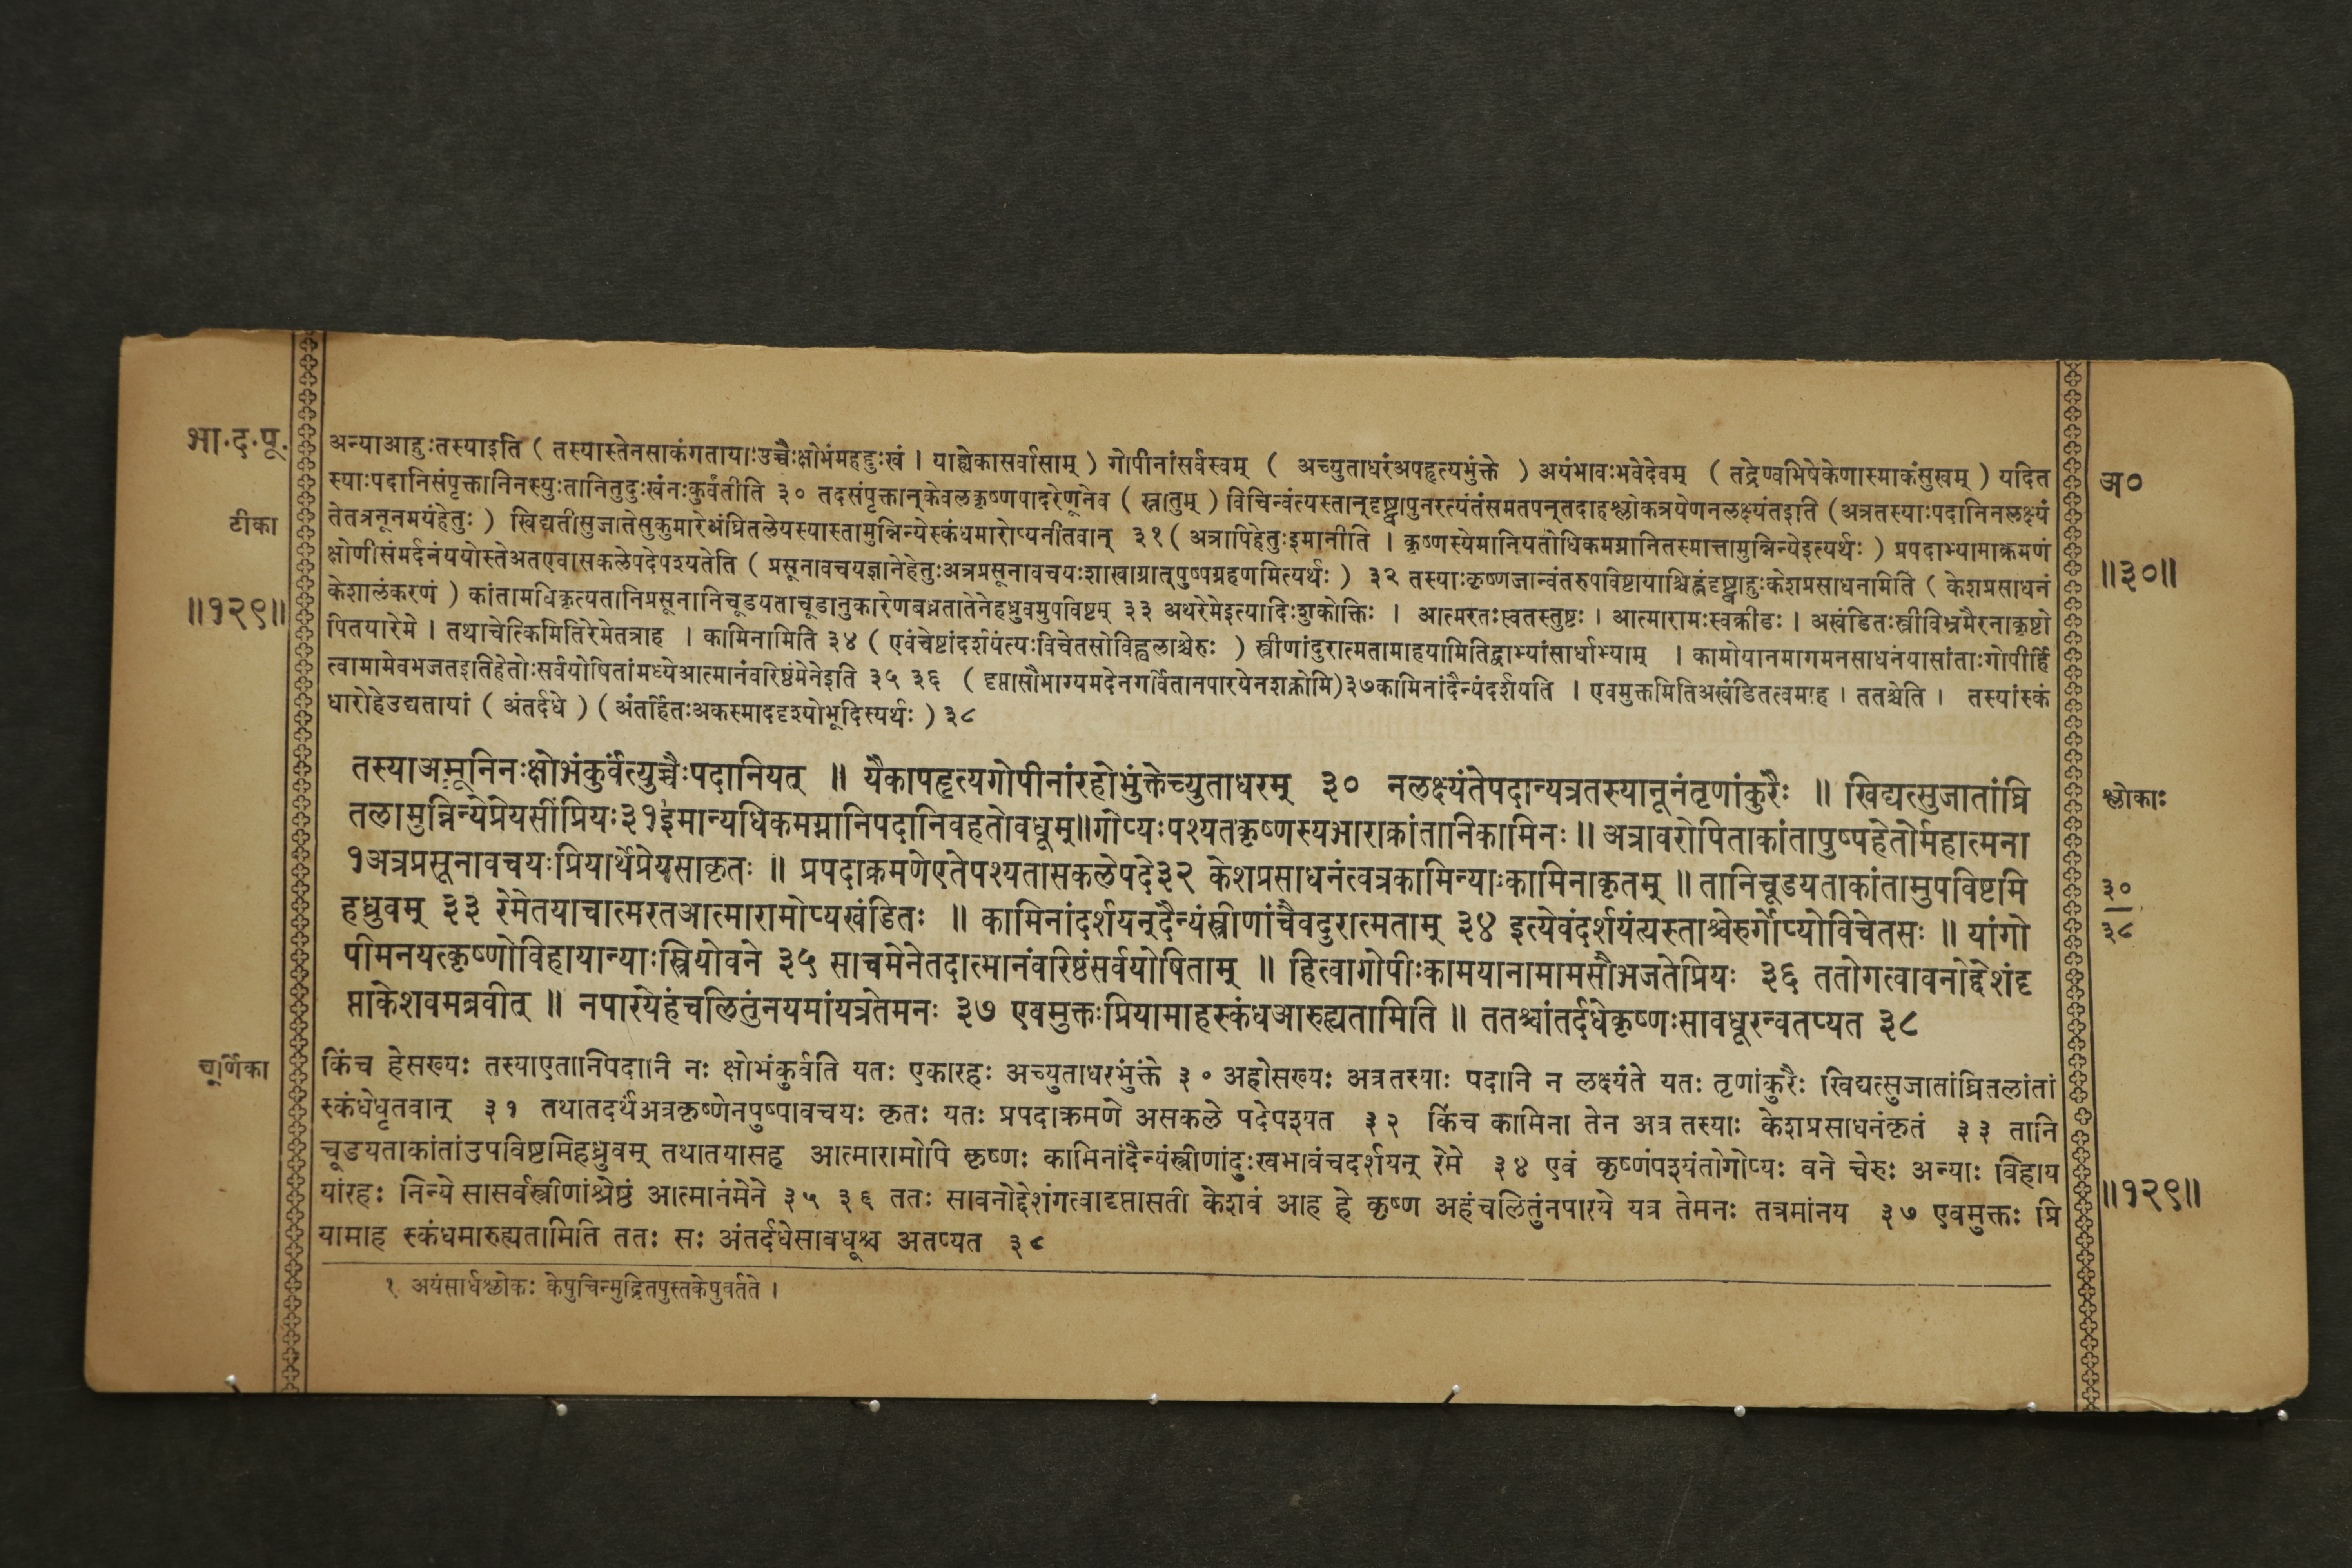 भा.द.पू.
टीका
॥१२९॥
अन्याआहुःतस्याइति ( तस्यास्तेनसाकंगतायाःउच्चैःक्षोभंमहद्दुःखं । याह्येकासर्वासाम् ) गोपीनांसर्वस्वम् ( अच्युताधरंअपहृत्यभुंक्ते ) अयंभावःभवेदेवम् ( तद्रेण्वभिषेकेणास्माकंसुखम् ) यदित
स्याःपदानिसंपृक्तानिनस्युःतानितुदुःखंनःकुर्वंतीति ३० तदसंपृक्तान्केवलकृष्णपादरेणूनेव ( स्नातुम् ) विचिन्वंत्यस्तान्दृष्ट्वापुनरत्यंतंसमतपन्तदाहश्लोकत्रयेणनलक्ष्यंतइति (अत्रतस्याःपदानिनलक्ष्यं
तेतत्रनूनमयंहेतुः ) खिद्यतीसुजातेसुकुमारेअंघ्रितलेयस्यास्तामुन्निन्येस्कंधमारोप्यनीतवान् ३१ ( अत्रापिहेतुःइमानीति । कृष्णस्येमानियतोधिकमग्नानितस्मात्तामुन्निन्येइत्यर्थः ) प्रपदाभ्यामाक्रमणं
क्षोणीसंमर्दनंययोस्तेअतएवासकलेपदेपश्यतेति ( प्रसूनावचयज्ञानेहेतुःअत्रप्रसूनावचयःशाखाग्रात्पुष्पग्रहणमित्यर्थः ) ३२ तस्याःकृष्णजान्वंतरुपविष्टायाश्चिह्नंदृष्ट्वाहुःकेशप्रसाधनामिति ( केशप्रसाधनं
केशालंकरणं ) कांतामधिकृत्यतानिप्रसूनानिचूडयताचूडानुकारेणबध्नतातेनेहध्रुवमुपविष्टम् ३३ अथरेमेइत्यादिःशुकोक्तिः । आत्मरतःस्वतस्तुष्टः । आत्मारामःस्वक्रीडः । अखंडितःस्त्रीविभ्रमैरनाकृष्टो
पितयारेमे । तथाचेत्किमितिरेमेतत्राह । कामिनामिति ३४ ( एवंचेष्टांदर्शयंत्यःविचेतसोविह्वलाश्चेरुः ) स्त्रीणांदुरात्मतामाहयामितिद्वाभ्यांसार्धाभ्याम् । कामोयानमागमनसाधनंयासांताःगोपीर्हि
त्वामामेवभजतइतिहेतोःसर्वयोषितांमध्येआत्मानंवरिष्ठंमेनेइति ३५ ३६ ( दृप्तासौभाग्यमदेनगर्वितानपारयेनशक्नोमि)३७कामिनांदैन्यंदर्शयति । एवमुक्तमितिअखंडितत्वमाह । ततश्चेति । तस्यांस्कं
धारोहेउद्यतायां ( अंतर्दधे ) ( अंतर्हितःअकस्माददृश्योभूदिस्यर्थः ) ३८
अ०
॥३०॥
तस्याअमूनिनःक्षोभंकुर्वंत्युच्चैःपदानियत् ॥ यैकापहृत्यगोपीनांरहोभुंक्तेच्युताधरम् ३० नलक्ष्यंतेपदान्यत्रतस्यानूनंतृणांकुरैः ॥ खिद्यत्सुजातांघ्रि
तलामुन्निन्येप्रेयसींप्रियः३१इमान्यधिकमग्नानिपदानिवहतोवधूम्॥गोप्यःपश्यतकृष्णस्यभाराक्रांतानिकामिनः ॥ अत्रावरोपिताकांतापुष्पहेतोर्महात्मना
१अत्रप्रसूनावचयःप्रियार्थेप्रेयसाकृतः ॥ प्रपदाक्रमणेएतेपश्यतासकलेपदे३२ केशप्रसाधनंत्वत्रकामिन्याःकामिनाकृतम् ॥ तानिचूडयताकांतामुपविष्टमि
हध्रुवम् ३३ रेमेतयाचात्मरतआत्मारामोप्यखंडितः ॥ कामिनांदर्शयन्दैन्यंस्त्रीणांचैवदुरात्मताम् ३४ इत्येवंदर्शयंत्यस्ताश्चेरुर्गोप्योविचेतसः ॥ यांगो
पीमनयत्कृष्णोविहायान्याःस्त्रियोवने ३५ साचमेनेतदात्मानंवरिष्ठंसर्वयोषिताम् ॥ हित्वागोपीःकामयानामामसौभजतेप्रियः ३६ ततोगत्वावनोद्देशंदृ
प्ताकेशवमब्रवीत् ॥ नपारयेहंचलितुंनयमांयत्रतेमनः ३७ एवमुक्तःप्रियामाहस्कंधआरुह्यतामिति ॥ ततश्चांतर्दधेकृष्णःसावधूरन्वतप्यत ३८
श्लोकाः
३०
३८
चूर्णिका
किंच हेसख्यः तस्याएतानिपदाानि नः क्षोभंकुर्वंति यतः एकारहः अच्युताधरंभुंक्ते ३० अहोसख्यः अत्रतस्याः पदानि न लक्ष्यंते यतः तृणांकुरैः खिद्यत्सुजातांघ्रितलांतां
स्कंधेधृतवान् ३१ तथातदर्थंअत्रकृष्णेनपुष्पावचयः कृतः यतः प्रपदाक्रमणे असकले पदेपश्यत ३२ किंच कामिना तेन अत्र तस्याः केशप्रसाधनंकृतं ३३ तानि
चूडयताकांतांउपविष्टमिहध्रुवम् तथातयासह आत्मारामोपि कृष्णः कामिनांदैन्यंस्त्रीणांदुःखभावंचदर्शयन् रेमे ३४ एवं कृष्णंपश्यंतोगोप्यः वने चेरुः अन्याः विहाय
यांरहः निन्ये सासर्वस्त्रीणांश्रेष्ठं आत्मानंमेने ३५ ३६ ततः सावनोद्देशंगत्वादृप्तासती केशवं आह हे कृष्ण अहंचलितुंनपारये यत्र तेमनः तत्रमांनय ३७ एवमुक्तः प्रि
यामाह स्कंधमारुह्यतामिति ततः सः अंतर्दधेसावधूश्च अतप्यत ३८
॥१२९॥
१ अयंसार्धश्लोकः केषुचिन्मुद्रितपुस्तकेषुवर्तते ।